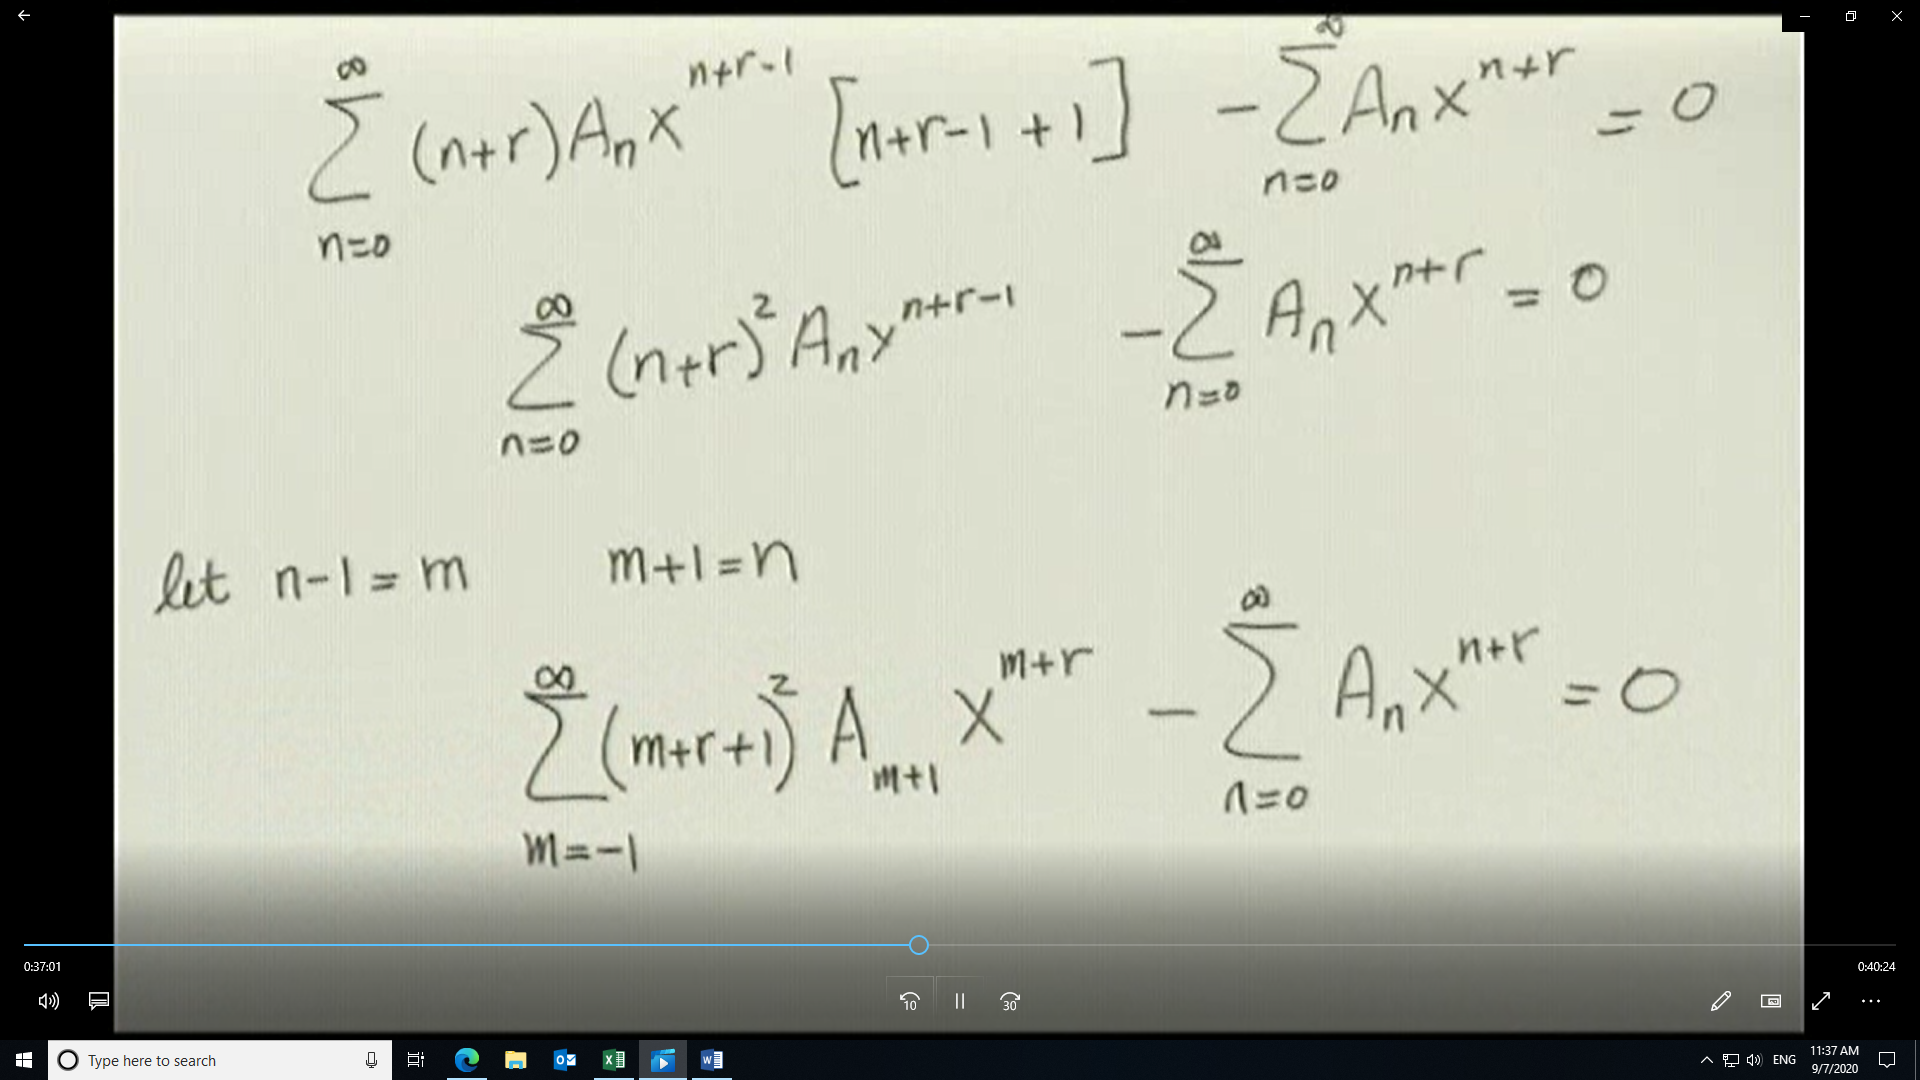 ∞ ∑ n=0 (n+r)Aₙx^(n+r-1) [n+r-1+1] - ∞ ∑ n=0 Aₙx^(n+r) = 0
∞ ∑ n=0 (n+r)² Aₙx^(n+r-1) - ∞ ∑ n=0 Aₙx^(n+r) = 0
let n-1=m m+1=n
∞ ∑ m=-1 (m+r+1)² A_(m+1) x^(m+r) - ∞ ∑ n=0 Aₙx^(n+r) = 0
0:37:01 0:40:24
10 30
Type here to search
ENG
11:37 AM
9/7/2020